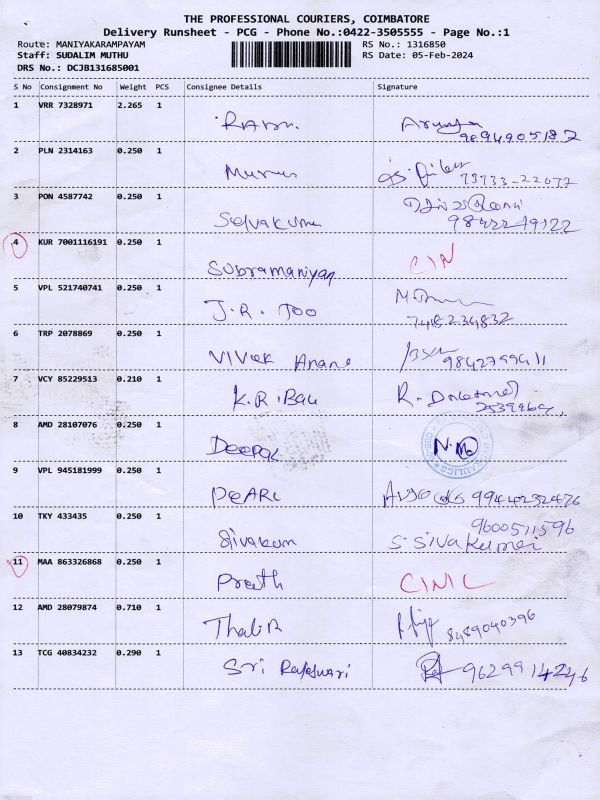 THE PROFESSIONAL COURIERS, COIMBATORE
Delivery Runsheet - PCG - Phone No.:0422-3505555 - Page No.:1
Route: MANIYAKARAMPAYAM RS No.: 1316850
Staff: SUDALIM MUTHU RS Date: 05-Feb-2024
DRS No.: DCJB131685001
S No Consignment No Weight PCS Consignee Details Signature
1 VRR 7328971 2.265 1
9894905187
2 PLN 2314163 0.250 1
73733-22077
3 PON 4587742 0.250 1
Selvakum 98422 19122
4 KUR 7001116191 0.250 1
Subramaniyan
5 VPL 521740741 0.250 1
J.R. TOO
7418234832
6 TRP 2078869 0.250 1
Vivek Anand 9842799411
7 VCY 85229513 0.210 1
K.R.Bau R.
8 AMD 28107076 0.250 1
DEEPAK
9 VPL 945181999 0.250 1
PEARL
10 TKY 433435 0.250 1
9600511596
Sivakum S. Sivakumar
11 MAA 863326868 0.250 1
Preeth
12 AMD 28079874 0.710 1
Thalir 8489040396
13 TCG 40834232 0.290 1
Sri Rajeswari 9629914246